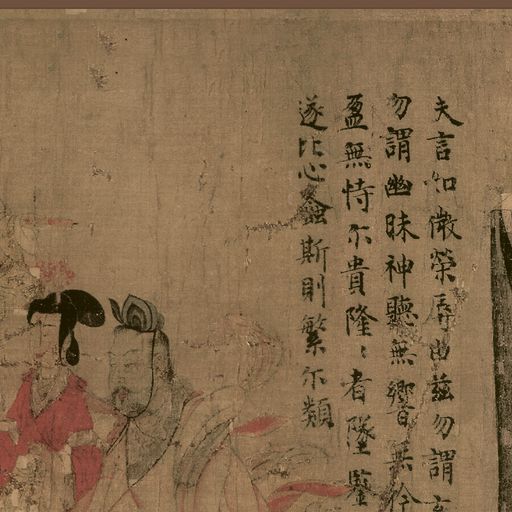 夫言如微榮辱由茲勿謂
勿謂幽昧神聽無響無矜
盈無恃尒貴隆〻者墜鑒
遂比心螽斯則繁尒類